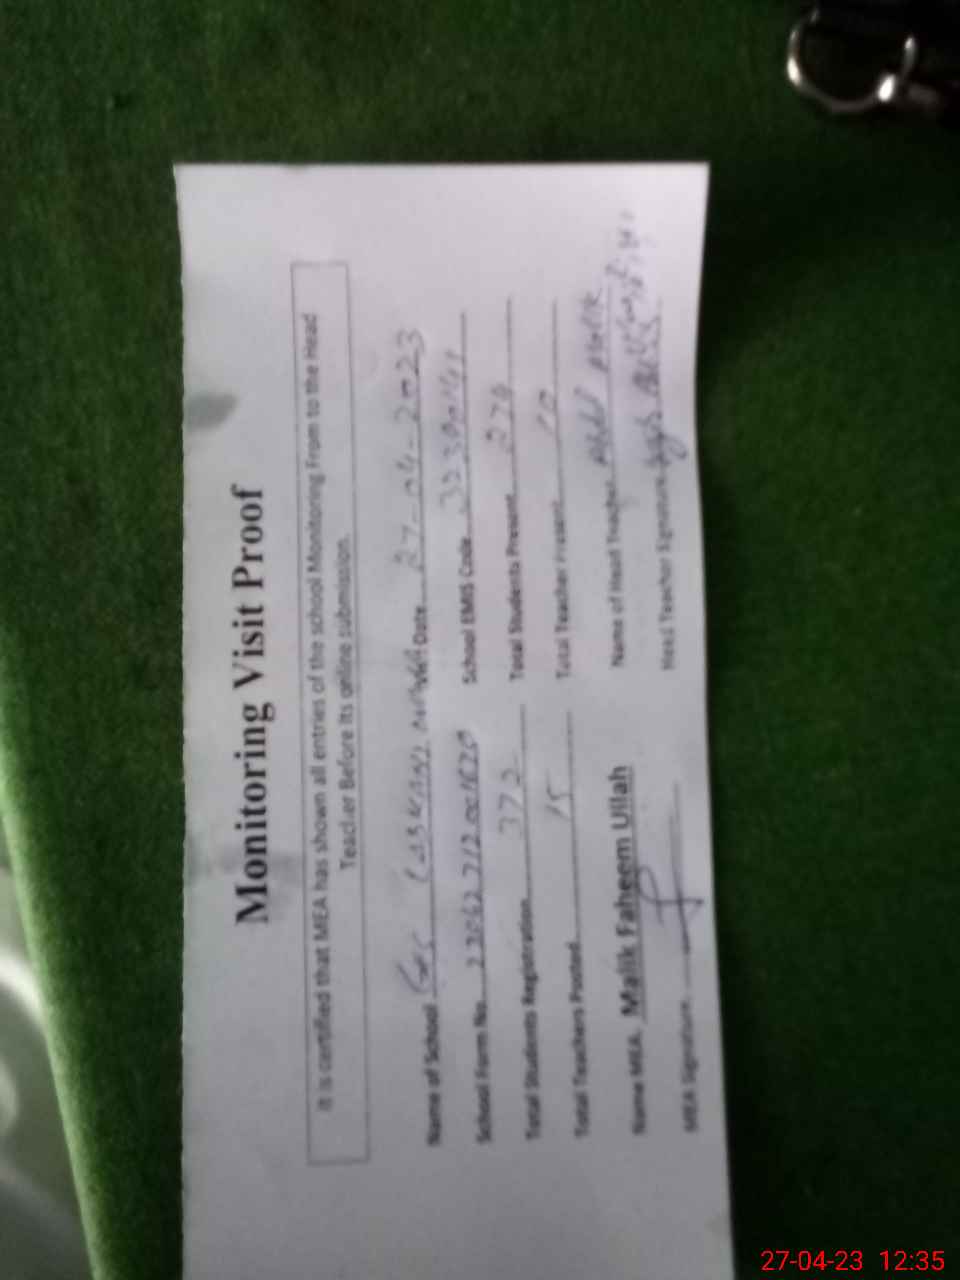 Monitoring Visit Proof
It is certified that MEA has shown all entries of the school Monitoring From to the Head
Teacher Before its online submission.
Name of School Date 27-04-2023
School Form No. School EMIS Code
Total Students Registration 372 Total Students Present 274
Total Teachers Posted 15 Total Teacher Present 10
Name MEA. Malik Faheem Ullah Name of Head Teacher
MEA Signature. Head Teacher Signature
27-04-23 12:35